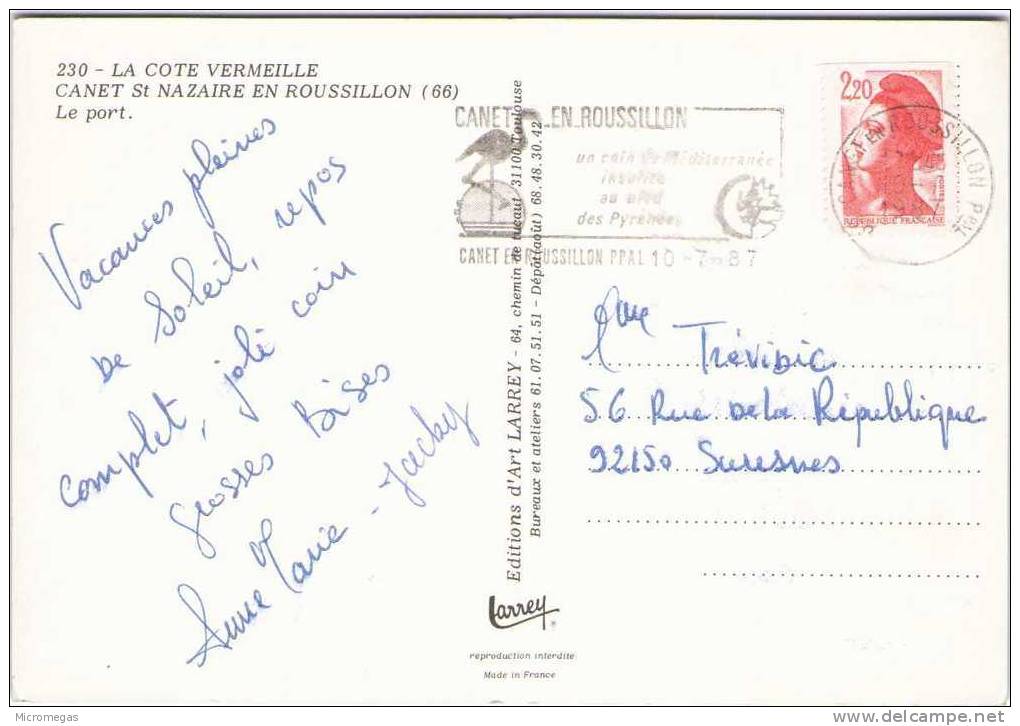 230 - LA COTE VERMEILLE
CANET St NAZAIRE EN ROUSSILLON (66)
Le port.
Vacances pleines
de Soleil, repos
complet, joli coin
grosses Bises
Anne Marie - Jacky
CANET EN ROUSSILLON
un coin de Méditerranée
insolite
au pied
des Pyrénées
CANET EN ROUSSILLON PPAL 10-7-87
2,20
REPUBLIQUE FRANCAISE
CANET EN ROUSSILLON PPAL
Editions d'Art LARREY - 64, chemin de tucaut 31100 Toulouse
Bureaux et ateliers 61.07.51.51 - Dépôt (août) 68.48.30.42
Mme Trévidic
56 Rue de la République
92150 Suresnes
Larrey
reproduction interdite
Made in France
Micromegas
www.delcampe.net